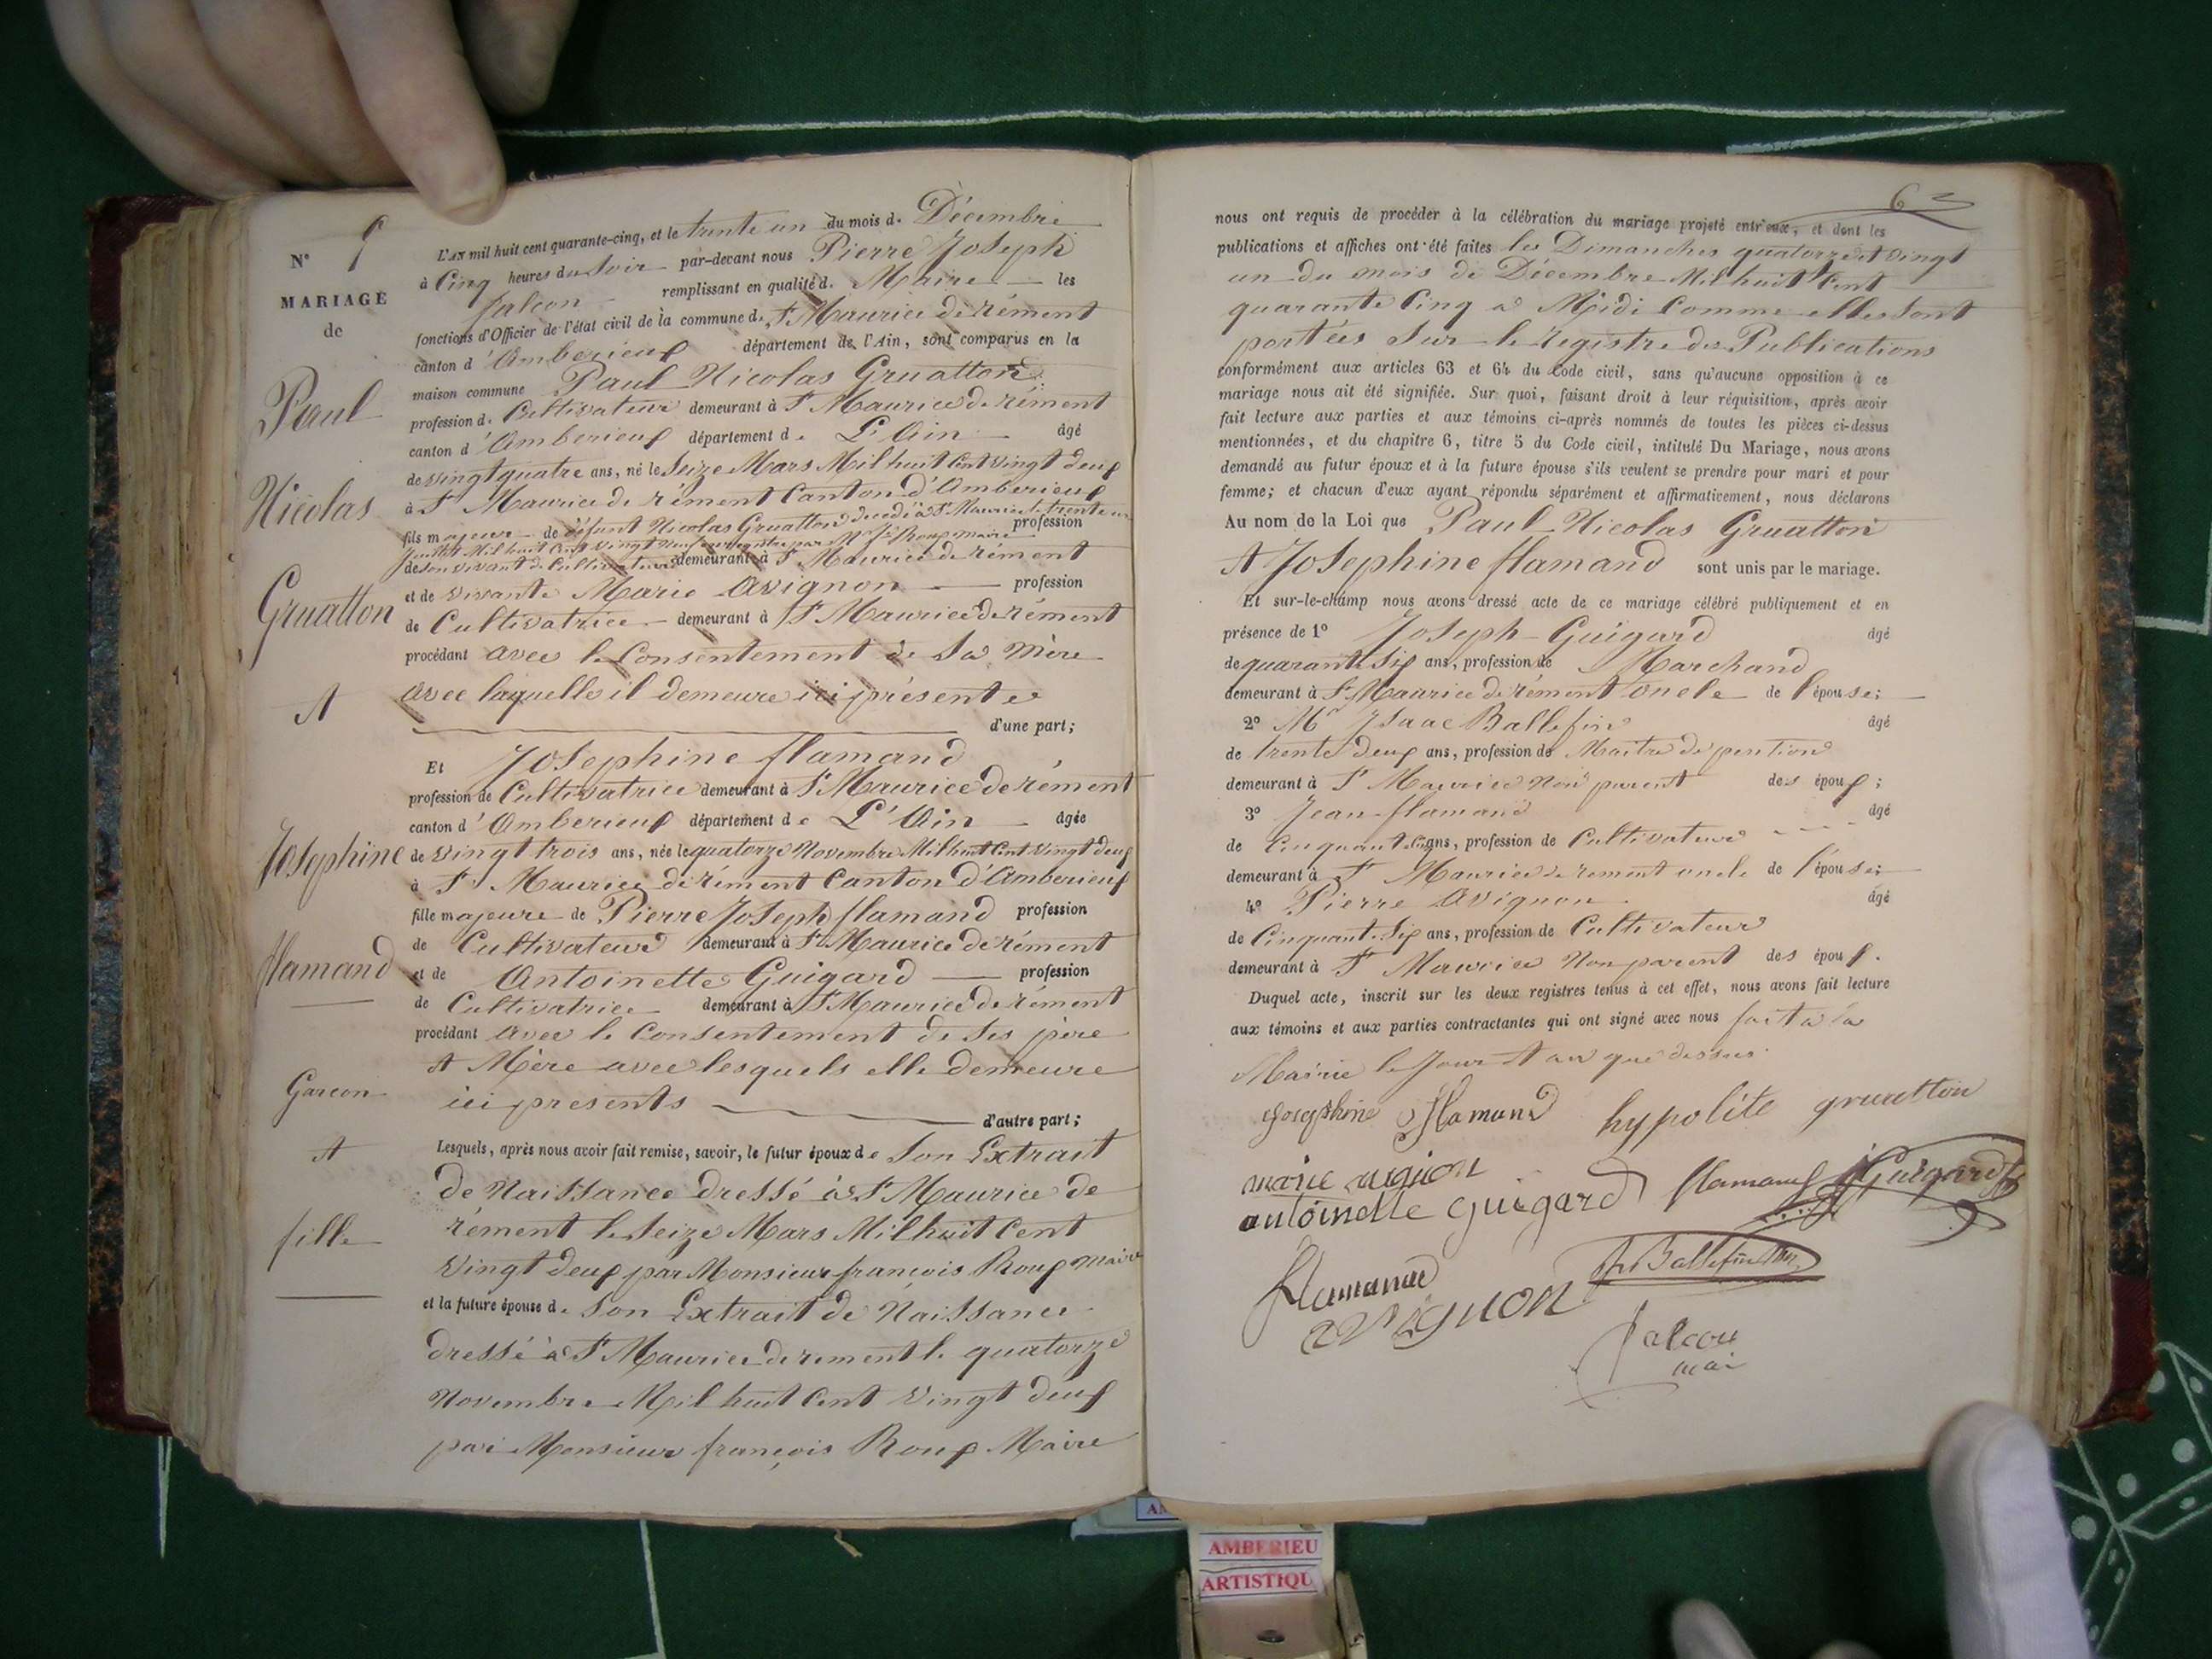 N° 9
MARIAGE
de
Paul
Nicolas
Gruatton
et
Josephine
flamand
Garcon
et
fille
L'AN mil huit cent quarante-cinq, et le trente un du mois d. Décembre
à Cinq heures du Soir par-devant nous Pierre Joseph
falcon remplissant en qualité d. Maire les
fonctions d'Officier de l'état civil de la commune d. St Maurice de rément
canton d'Amberieux département de l'Ain, sont comparus en la
maison commune Paul Nicolas Gruatton
profession d. Cultivateur demeurant à St Maurice de rément
canton d'Amberieux département d. L'Ain âgé
de vingt quatre ans, né le Seize Mars Mil huit Cent vingt deux
à St Maurice de rément Canton d'Amberieux
fils majeur de défunt Nicolas Gruatton décédé à St Maurice le trente un profession
Juillet Mil huit Cent vingt neuf Roux maire
de son vivant de Cultivateur demeurant à St Maurice de rément
et de vivante Marie Avignon profession
de Cultivatrice demeurant à St Maurice de rément
procédant avec le Consentement de Sa Mère
avec laquelle il demeure ici présente
d'une part;
Et Josephine flamand
profession de Cultivatrice demeurant à St Maurice de rément
canton d'Amberieux département d. L'Ain âgée
de vingt trois ans, née le quatorze Novembre Mil huit Cent vingt deux
à St Maurice de rément Canton d'Amberieux
fille majeure de Pierre Joseph flamand profession
de Cultivateur demeurant à St Maurice de rément
et de Antoinette Guigard profession
de Cultivatrice demeurant à St Maurice de rément
procédant avec le Consentement de Ses père
et Mère avec lesquels elle demeure
ici presents
d'autre part;
Lesquels, après nous avoir fait remise, savoir, le futur époux d. Son Extrait
de Naissance dressé à St Maurice de
rément le Seize Mars Mil huit Cent
Vingt deux par Monsieur françois Roux Maire
et la future épouse d. Son Extrait de Naissance
dressé à St Maurice de rement le quatorze
Novembre Mil huit Cent Vingt deux
par Monsieur françois Roux Maire
63
nous ont requis de procéder à la célébration du mariage projeté entr'eux, et dont les
publications et affiches ont été faites les Dimanches quatorze et vingt
un du mois de Décembre Mil huit Cent
quarante Cinq à Midi Comme elles Sont
portées Sur le Registre des Publications
conformément aux articles 63 et 64 du Code civil, sans qu'aucune opposition à ce
mariage nous ait été signifiée. Sur quoi, faisant droit à leur réquisition, après avoir
fait lecture aux parties et aux témoins ci-après nommés de toutes les pièces ci-dessus
mentionnées, et du chapitre 6, titre 5 du Code civil, intitulé Du Mariage, nous avons
demandé au futur époux et à la future épouse s'ils veulent se prendre pour mari et pour
femme; et chacun d'eux ayant répondu séparément et affirmativement, nous déclarons
Au nom de la Loi que Paul Nicolas Gruatton
et Josephine flamand sont unis par le mariage.
Et sur-le-champ nous avons dressé acte de ce mariage célébré publiquement et en
présence de 1° Joseph Guigard âgé
de quarante Six ans, profession de Marchand
demeurant à St Maurice de rément oncle de l'épouse;
2° Mr Isaac Ballefin âgé
de trente deux ans, profession de Maitre de pention
demeurant à St Maurice Non parent des époux;
3° Jean flamand âgé
de Cinquante ans, profession de Cultivateur
demeurant à St Maurice de rement oncle de l'épouse;
4° Pierre Avignon âgé
de Cinquante Six ans, profession de Cultivateur
demeurant à St Maurice Non parent des époux.
Duquel acte, inscrit sur les deux registres tenus à cet effet, nous avons fait lecture
aux témoins et aux parties contractantes qui ont signé avec nous fait à la
Mairie le Jour et an que dessus
Josephine flamand hypolite gruatton
marie avignon
antoinette Guigard flamand Guigard
flamand Ballefin
avignon
falcon
mai
AMBERIEU
ARTISTIQU